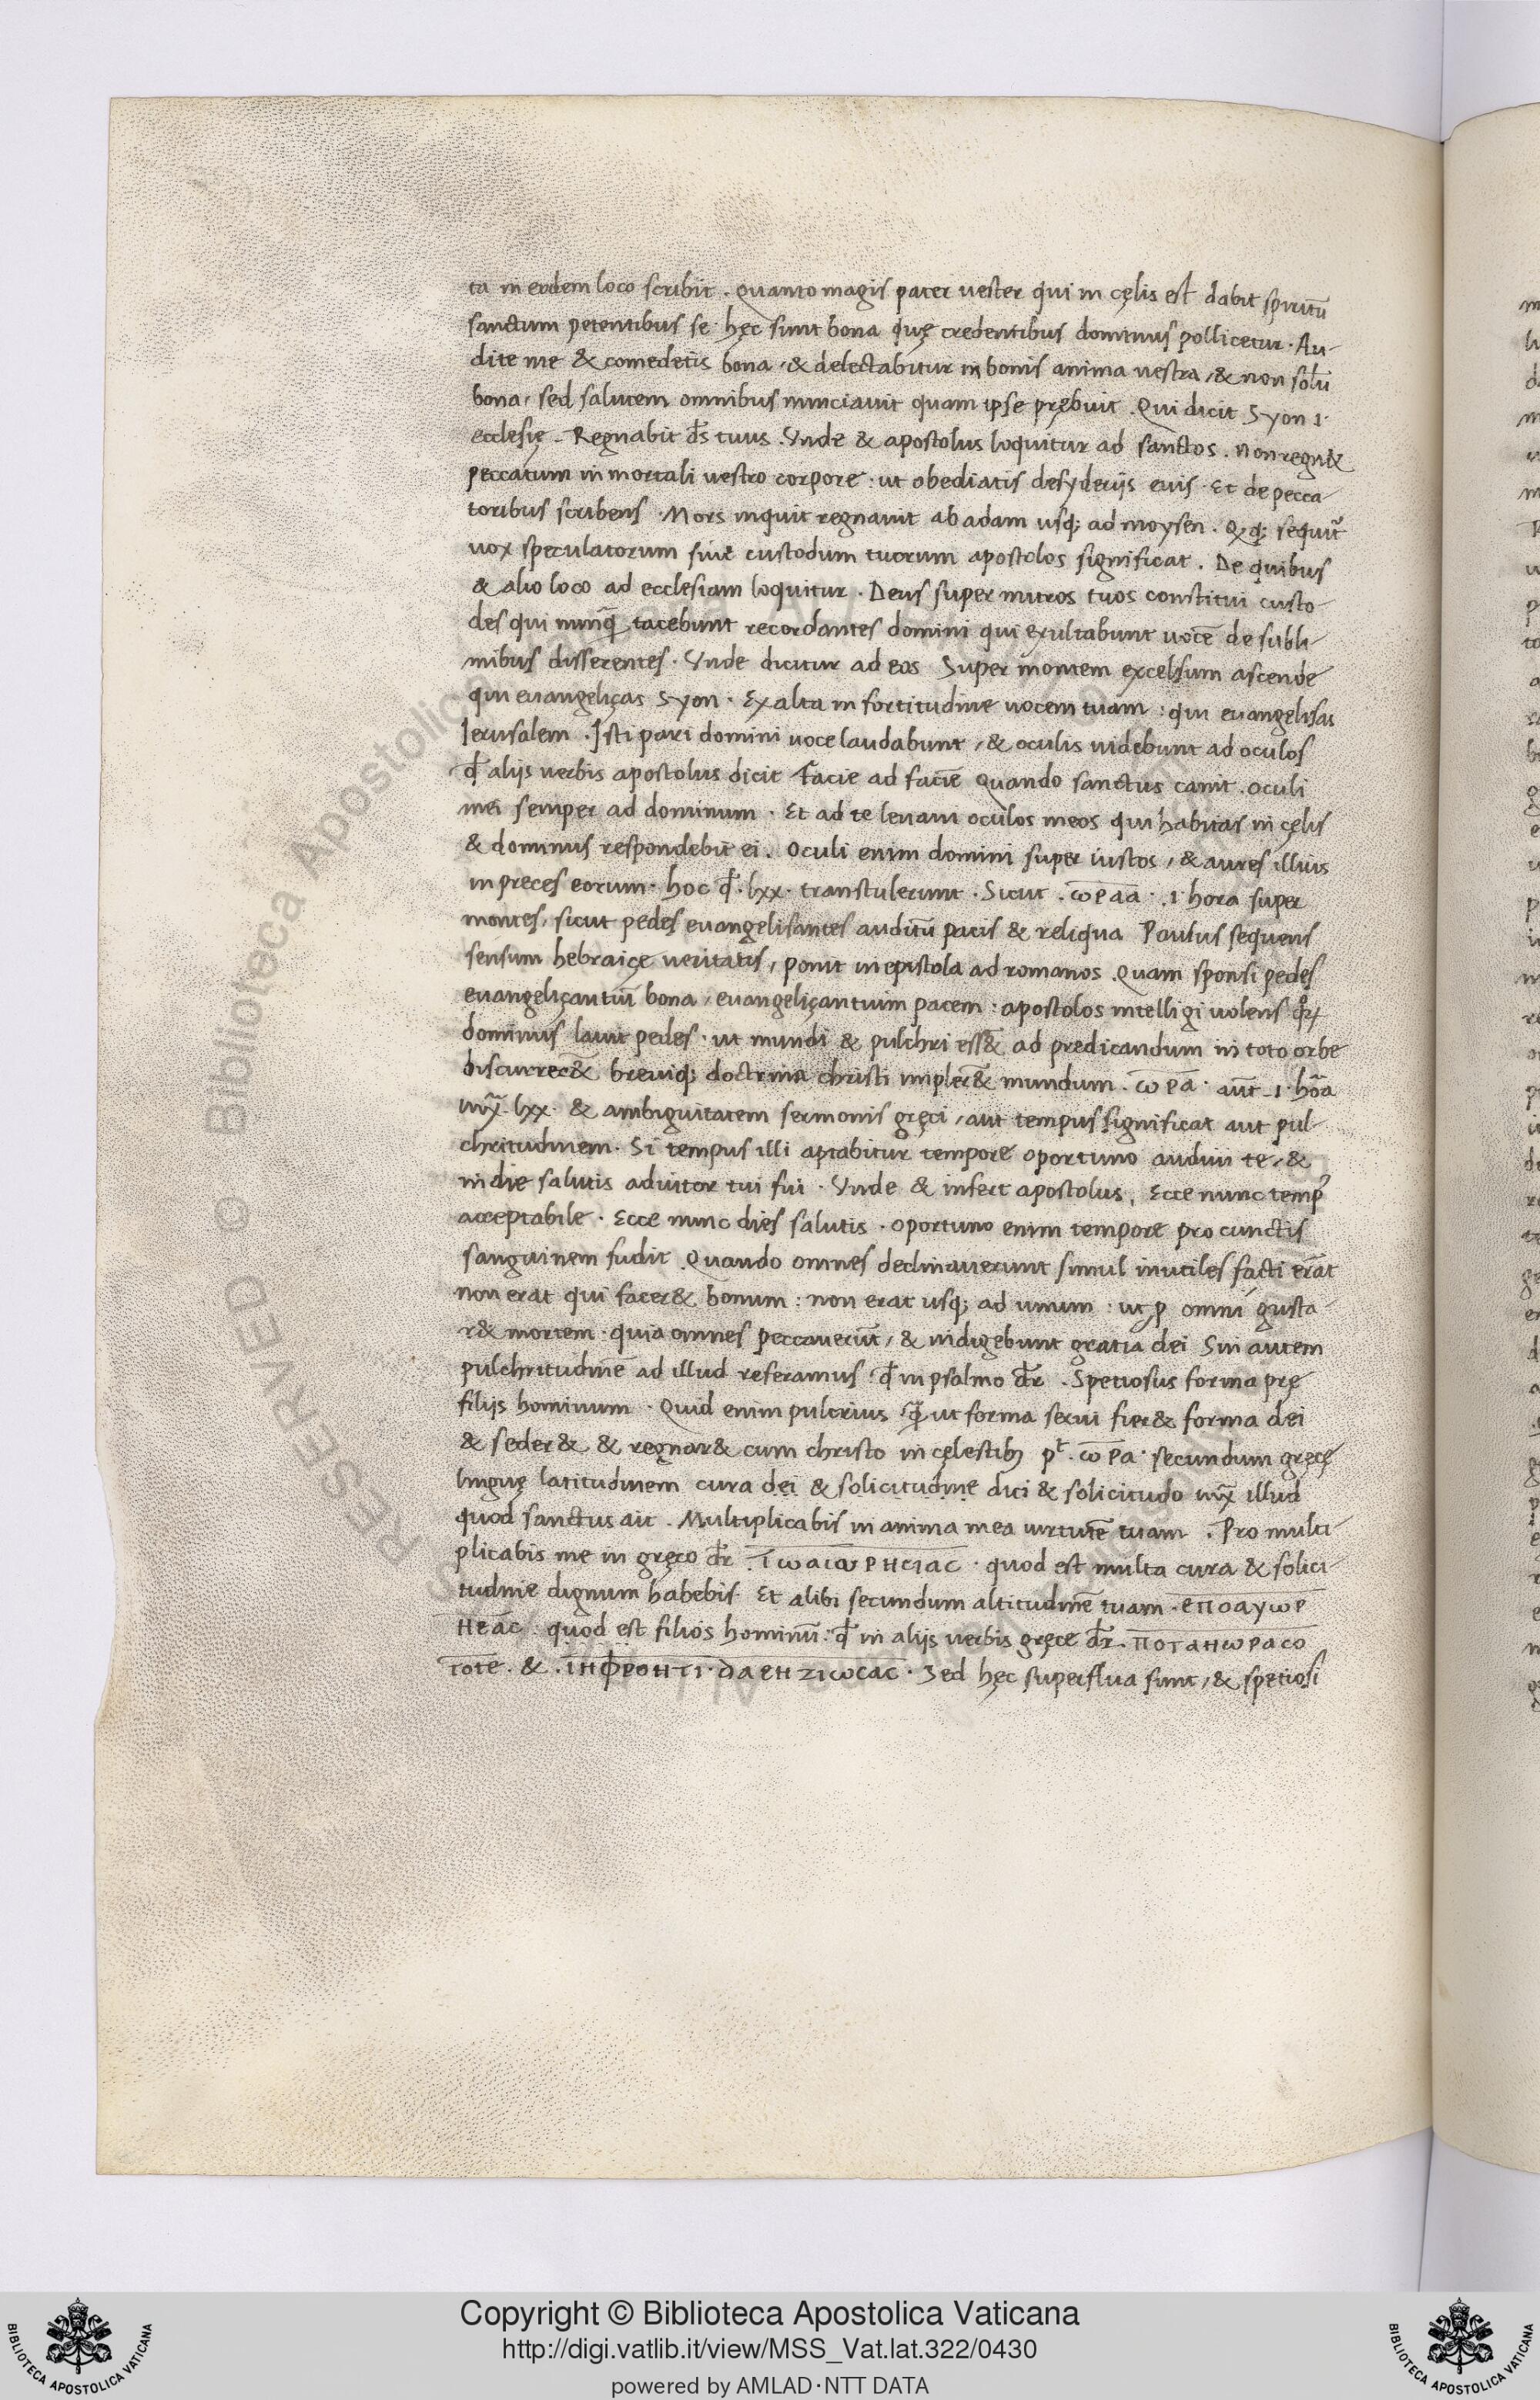 ta in eodem loco scribit . Quanto magis pater uester qui in cęlis est dabit spiritū
sanctum petentibus se · hęc sunt bona quę credentibus dominus pollicetur · Au-
dite me & comedetis bona , & delectabitur in bonis anima uestra , & non solū
bona , sed salutem omnibus nunciauit quam ipse prębuit . Qui dicit Syon .i.
ecclesię . Regnabit ds̄ tuus . Vnde & apostolus loquitur ad sanctos . non regn&
peccatum in mortali uestro corpore : ut obediatis desyderijs eius · Et de pecca-
toribus scribens · Mors inquit regnauit ab adam usq; ad moysen .
uox speculatorum siue custodum tuorum apostolos significat . De quibus
& alio loco ad ecclesiam loquitur . Deus super muros tuos constitui custo-
des qui nunq̄ tacebunt recordantes domini qui exultabunt uocē de subli-
mibus disserentes · Vnde dicitur ad eos Super montem excelsum ascende
qui euangeliças Syon · Exalta in fortitudine uocem tuam : qui euangelisas
Ierusalem . Isti pari domini uoce laudabunt , & oculis uidebunt ad oculos
qd̄ alijs uerbis apostolus dicit facie ad faciē Quando sanctus canit . oculi
mei semper ad dominum · Et ad te leuaui oculos meos qui habitas in cęlis
& dominus respondebit ei . Oculi enim domini super iustos , & aures illius
in preces eorum · hoc qd̄ · lxx · transtulerunt . Sicut . ωραα · .i. hora super
montes , sicut pedes euangelisantes auditū pacis & reliqua Paulus sequens
sensum hebraicę ueritatis , ponit in epistola ad romanos . Quam sponsi pedes
euangeliçantiū bona , euangeliçantium pacem : apostolos intelligi uolens
dominus lauit pedes · ut mundi & pulchri ess& ad predicandum in toto orbe
discurrer& breuiq; doctrina christi impler& mundum . ωρα · aut̄ .i. hōa
iux̄ lxx · & ambiguitatem sermonis gręci , aut tempus significat aut pul-
chritudinem . Si tempus illi aptabitur tempore oportuno audiui te , &
in die salutis adiutor tui fui · Vnde & infert apostolus , Ecce nunc temp⁹
acceptabile · Ecce nunc dies salutis · oportuno enim tempore pro cunctis
sanguinem fudit Quando omnes declinauerunt simul inutiles facti erāt
non erat qui facer& bonum : non erat usq; ad unum : ut p omni gusta-
r& mortem · quia omnes peccauerūt , & indigebunt gratia dei Sin autem
pulchritudinē ad illud referamus qd̄ in psalmo dr̄ . Spetiosus forma prę
filijs hominum · Quid enim pulcrius q̄ ut forma serui fier& forma dei
& seder& & regnar& cum christo in cęlestib; pt . ωρα · secundum gręcę
linguę latitudinem cura dei & solicitudine dici & solicitudo iux̄ illud
quod sanctus ait . Multiplicabis in anima mea uirtutē tuam . Pro multi-
plicabis me in gręco dr̄ . ΤωαιωΡΗϹΙΑϹ · quod est multa cura & solici-
tudine dignum habebis · Et alibi secundum altitudinē tuam · ΕΠΟΑΥωΡ
ΗΕΑϹ · quod est filios hominū · qd̄ in alijs uerbis gręce dr̄ . ΠΟΤΑΗωΡΑϹΟ
ΤΟΤΕ . & . ΙΗΦΡΟΗΤΙ · ΔΑΕΗΖΙωϹΑϹ · Sed hęc superflua sunt , & spetiosi
RESERVED © Biblioteca Apostolica
Copyright © Biblioteca Apostolica Vaticana
http://digi.vatlib.it/view/MSS_Vat.lat.322/0430
powered by AMLAD·NTT DATA
BIBLIOTECA APOSTOLICA VATICANA
BIBLIOTECA APOSTOLICA VATICANA